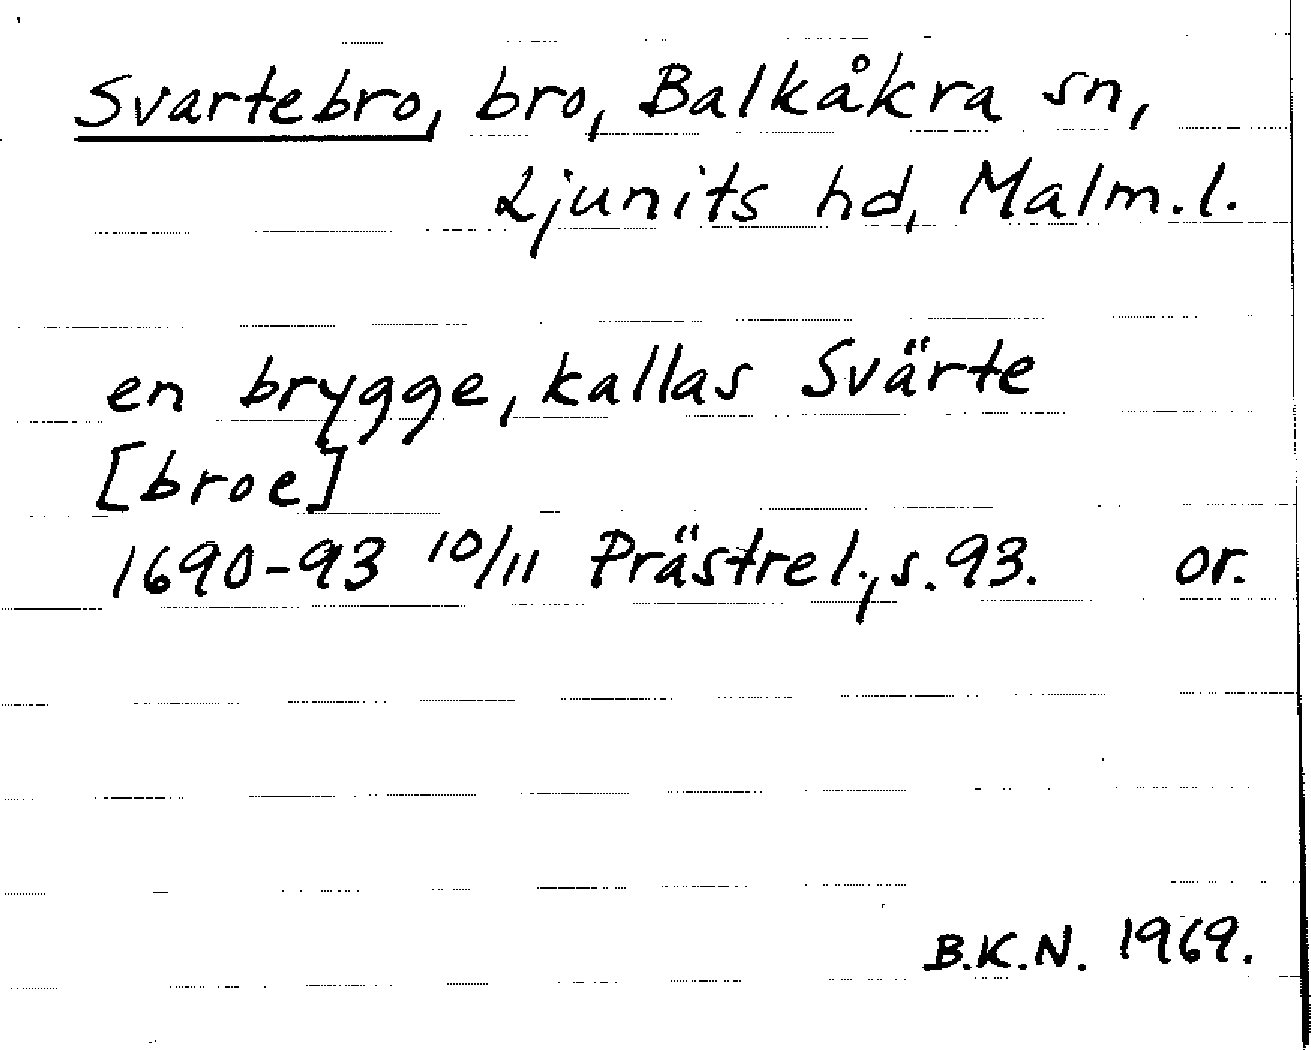 Svartebro, bro, Balkåkra sn,
Ljunits hd, Malm.l.
en brygge, kallas Svärte
[broe]
1690-93 10/11 Prästrel., s. 93. or.
B.K.N. 1969.